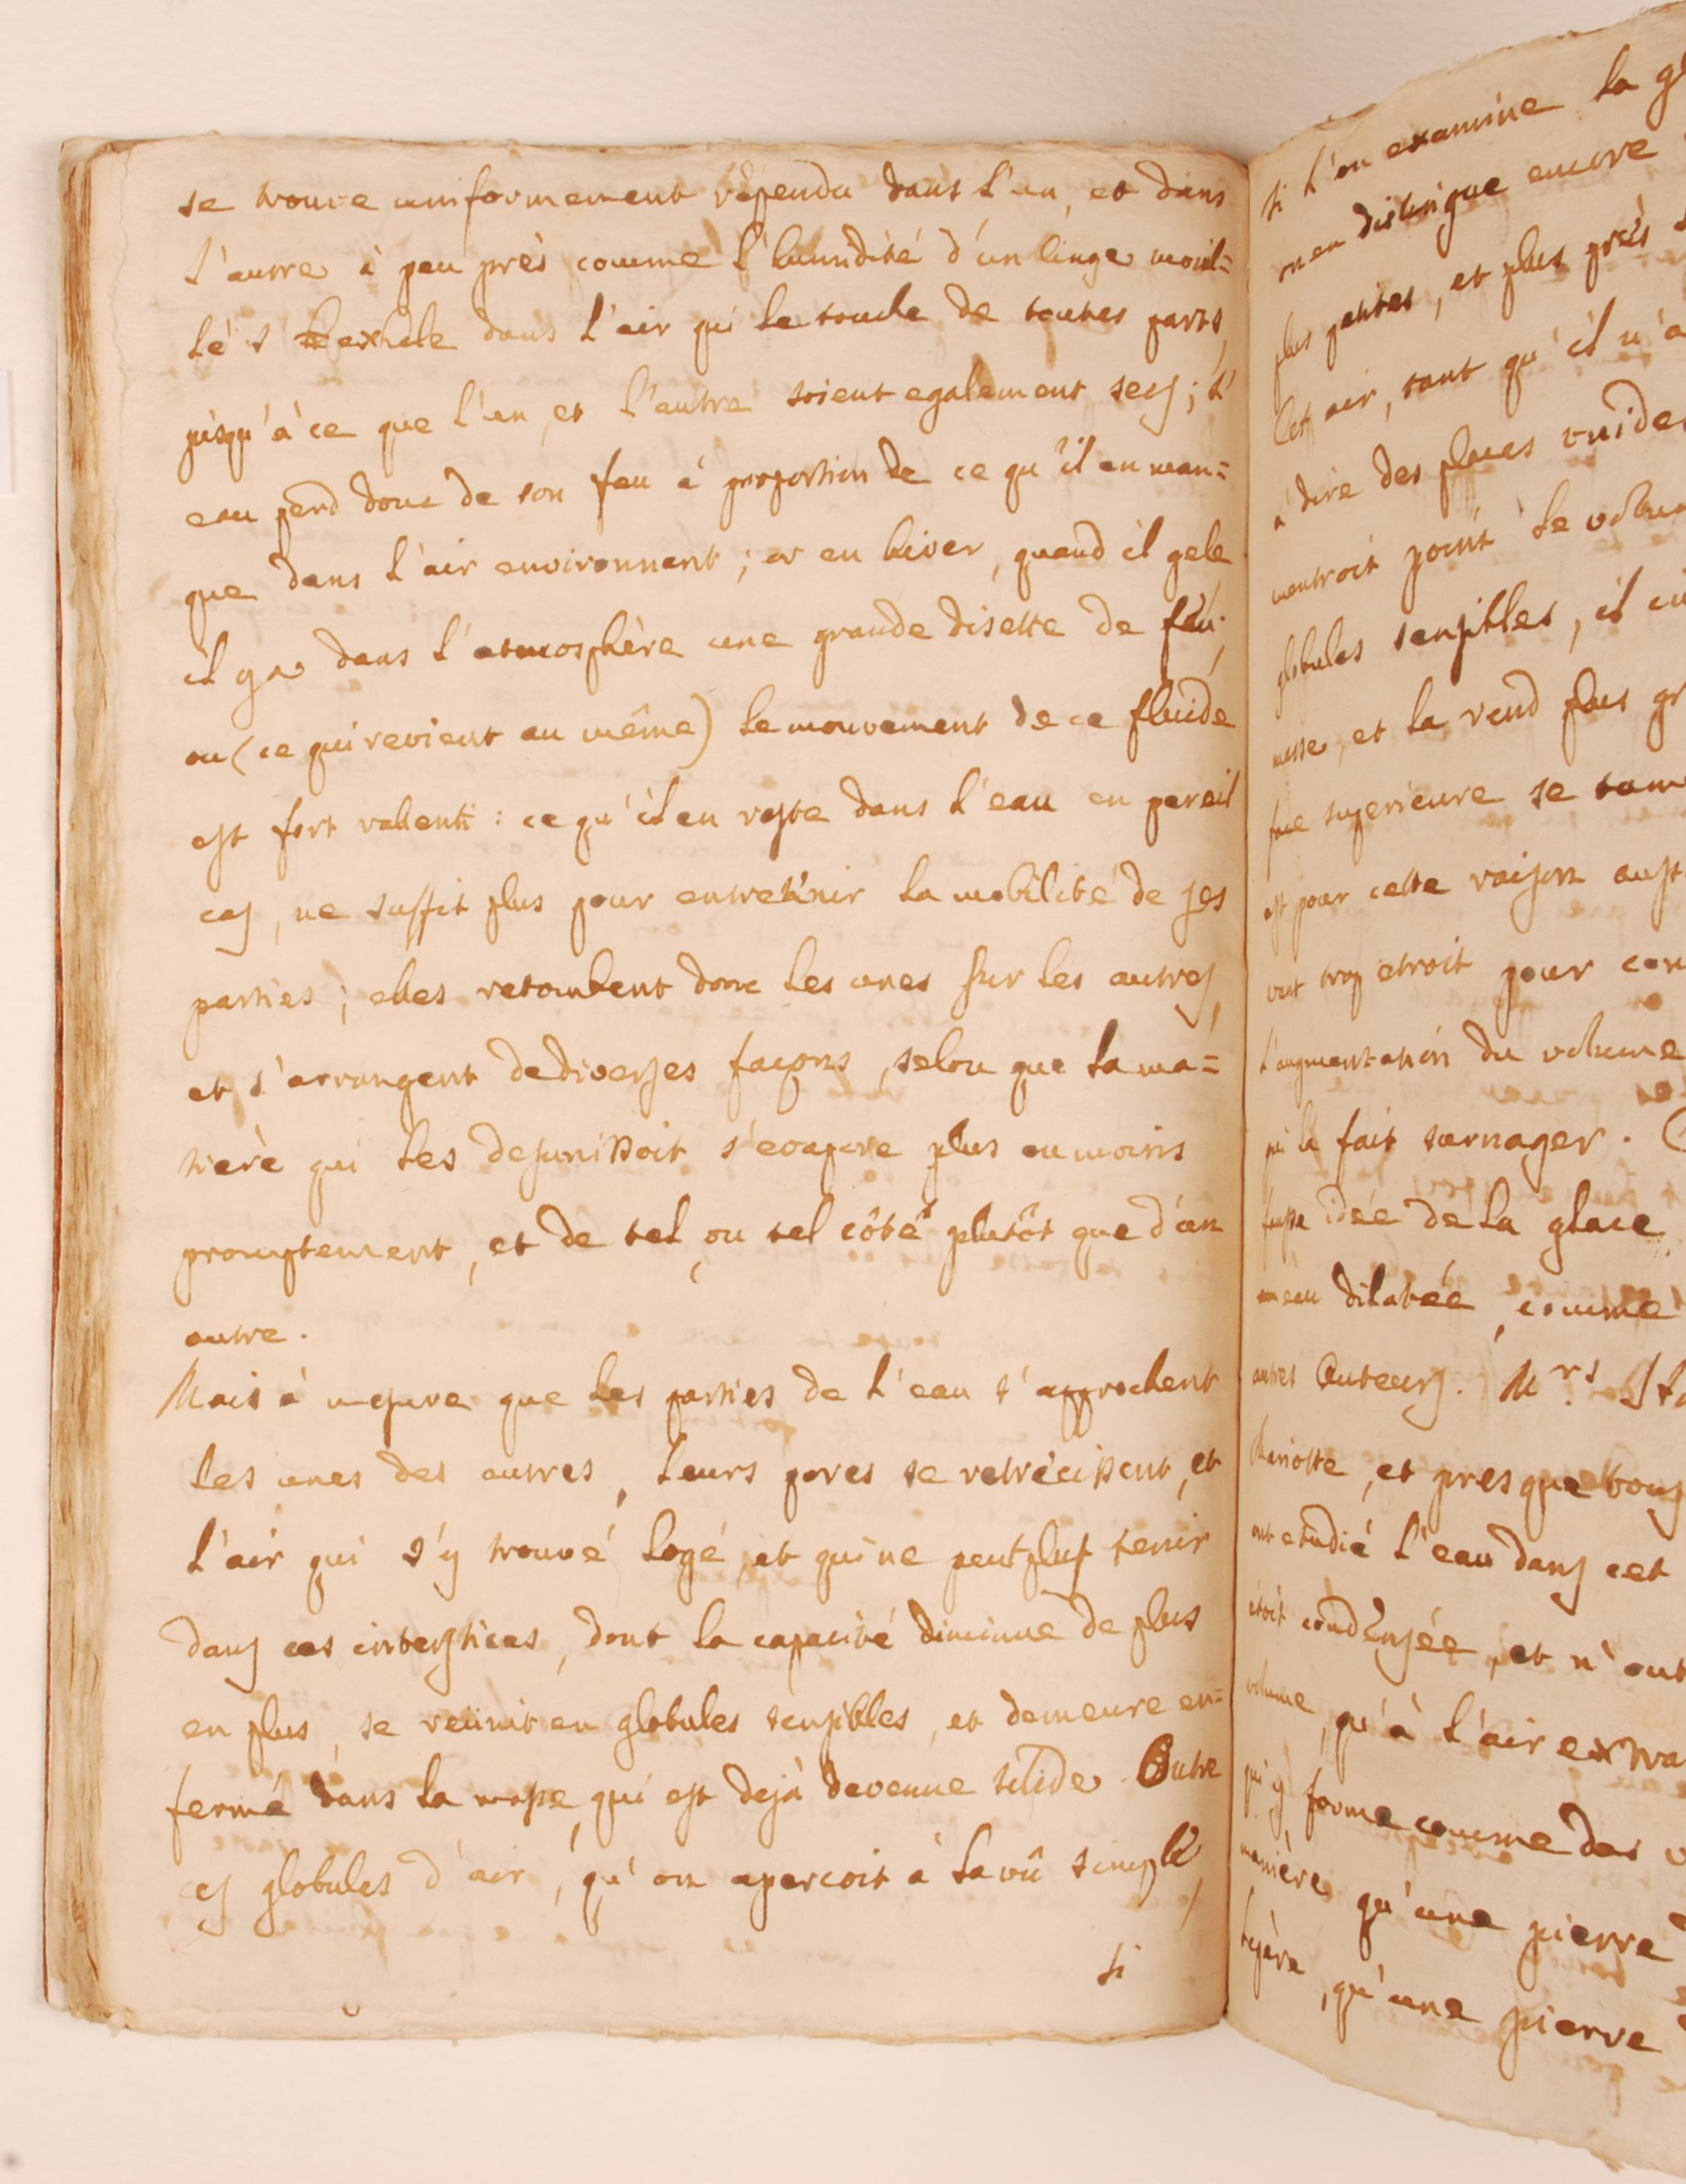 se trouve uniformement rependu dans l'un, et dans
l'autre à peu près comme l'humidité d'un linge mouil=
lé s'exhale dans l'air qui le touche de toutes parts,
jusqu'à ce que l'un, et l'autre soient egalement secs; l'
eau perd donc de son feu à proportion de ce qu'il en man=
que dans l'air environnant; or en hiver, quand il gele
il y a dans l'atmosphère une grande disette de feu;
ou (ce qui revient au même) le mouvement de ce fluide
est fort ralenti: ce qu'il en reste dans l'eau en pareil
cas, ne suffit plus pour entretenir la mobilité de ses
parties; elles retombent donc les unes sur les autres,
et s'arrangent de diverses façons, selon que la ma=
tierè qui les desunissoit s'evapore plus ou moins
promptement, et de tel, ou tel côté plutôt que d'un
autre.
Mais à mesure que les parties de l'eau s'approchent
les unes des autres, leurs pores se retrécissent, et
l'air qui s'y trouvé logé, et qui ne peut plus tenir
dans ces interstices, dont la capacité diminue de plus
en plus, se reünit en globules sensibles, et demeure en=
fermé dans la masse, qui est dejà devenue solide. Outre
ces globules d'air, qu'on aperçoit à la vû simple,
si
si l'on examine la
on en distingue encore
plus petites, et plus près
Cet air, tant qu'il n'a
à dire des places vuides
mentroit point le
globules sensibles, il
masse, et la rend plus
face superieure se
est pour cette raison
trop etroit pour
l'augmentation du volume
qui la fait surnager.
fausse idée de la glace
eau dilatée, comme
autres Auteurs. Mrs.
Mariotte, et presque tous
ont etudié l'eau dans cet
étoit condensée, et n'ont
volume, qu'à l'air
qui y forme comme des
manière qu'une pierre
legère, qu'une pierre